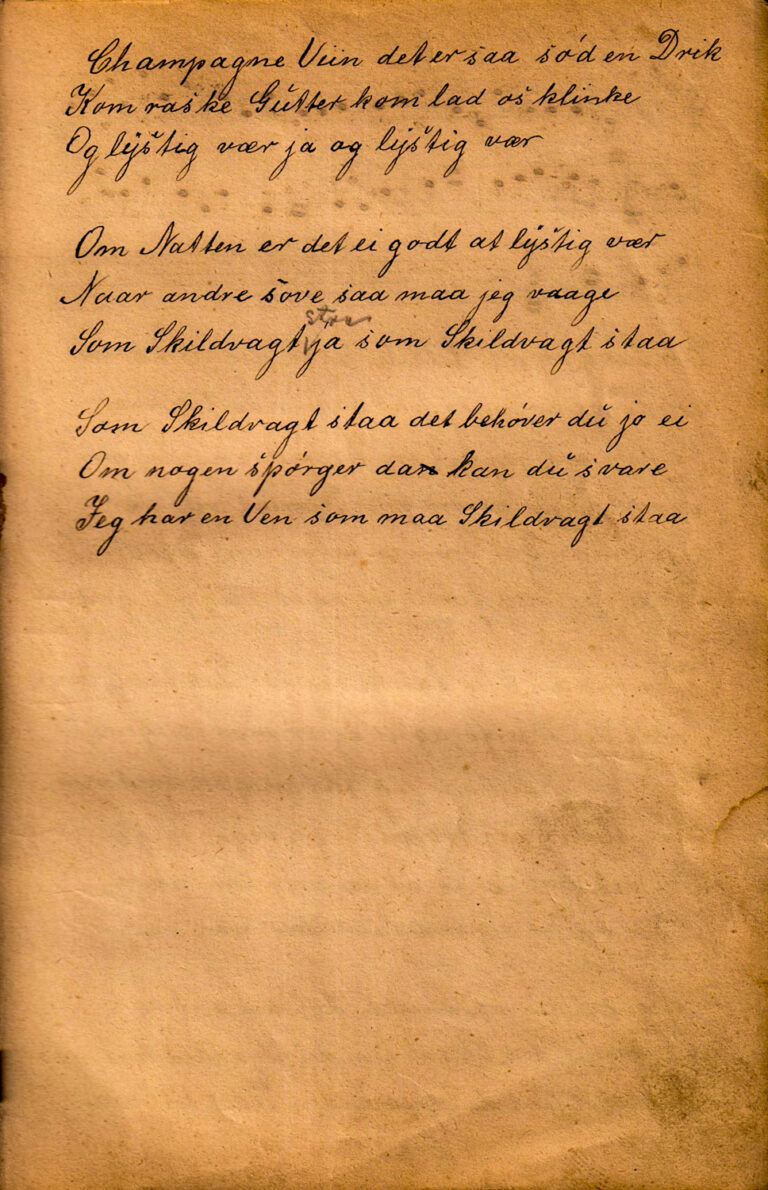 Champagne Viin det er saa sød en Drik
Kom raske Gutter kom lad os klinke
Og lÿstig vær ja og lÿstig vær
Om Natten er det ei godt at lÿstig vær
Naar andre sove saa maa jeg vaage
Som Skildvagt staa ja som Skildvagt staa
Som Skildvagt staa det behøver du jo ei
Om nogen spørger dan kan du svare
Jeg har en Ven som maa Skildvagt staa